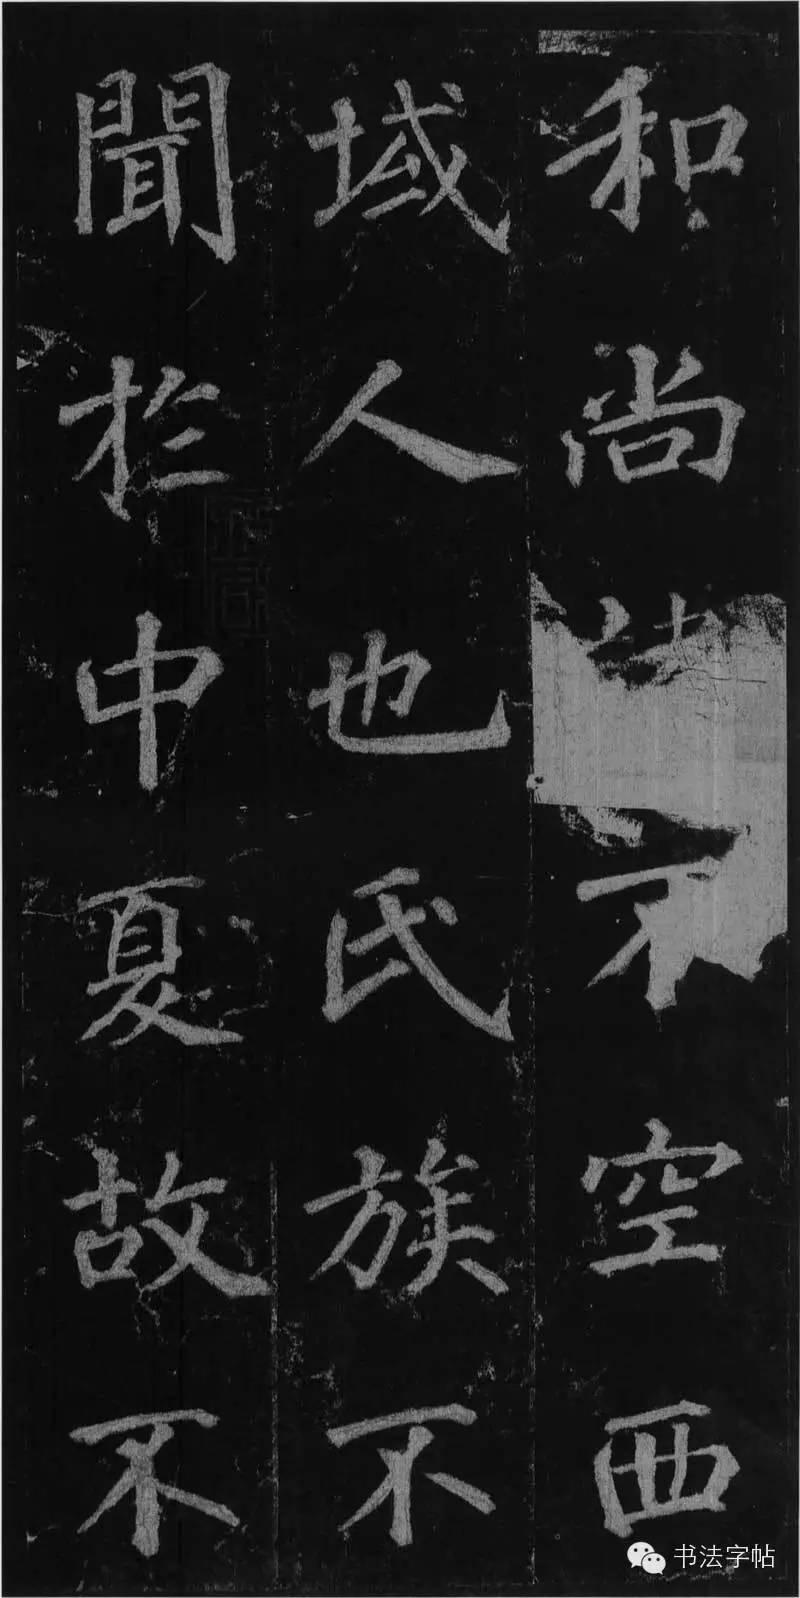 和尚諱不空西
域人也氏族不
聞於中夏故不
书法字帖